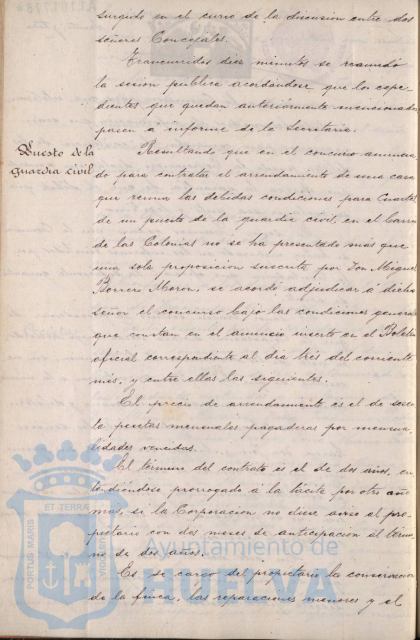 surgido en el curso de la discusion entre dos
señores Concejales.
Trascurridos diez minutos se reanudó
la sesion publica acordándose que los espe-
dientes que quedan anteriormente mencionados
pasen a informe de la Secretaria.
Puesto de la
guardia civil
Resultando que en el concurso anuncia-
do para contratar el arrendamiento de una casa
que reuna las debidas condiciones para Cuartel
de un puesto de la guardia civil, en el Barrio
de las Colonias no se ha presentado mas que
una sola proposicion suscrita por Don Miguel
Borrero Moron, se acordó adjudicar á dicho
señor el concurso bajo las condiciones general
que constan en el anuncio inserto en el Boletin
oficial correspondiente al dia tres del corriente
mes, y entre ellas las siguientes.
El precio de arrendamiento es el de sesen-
ta pesetas mensuales pagaderas por mensua-
lidades vencidas.
El término del contrato es el de dos años, en-
tendiéndose prorrogado á la tácita por otro año
mas, si la Corporacion no diese aviso al pro-
pietario con dos meses de anticipacion al térmi-
no de dos años.
Es de cargo del propietario la conservacion
de la finca, las reparaciones menores y el
PORTUS MARIS
ET TERRA
Ayuntamiento de
HUELVA